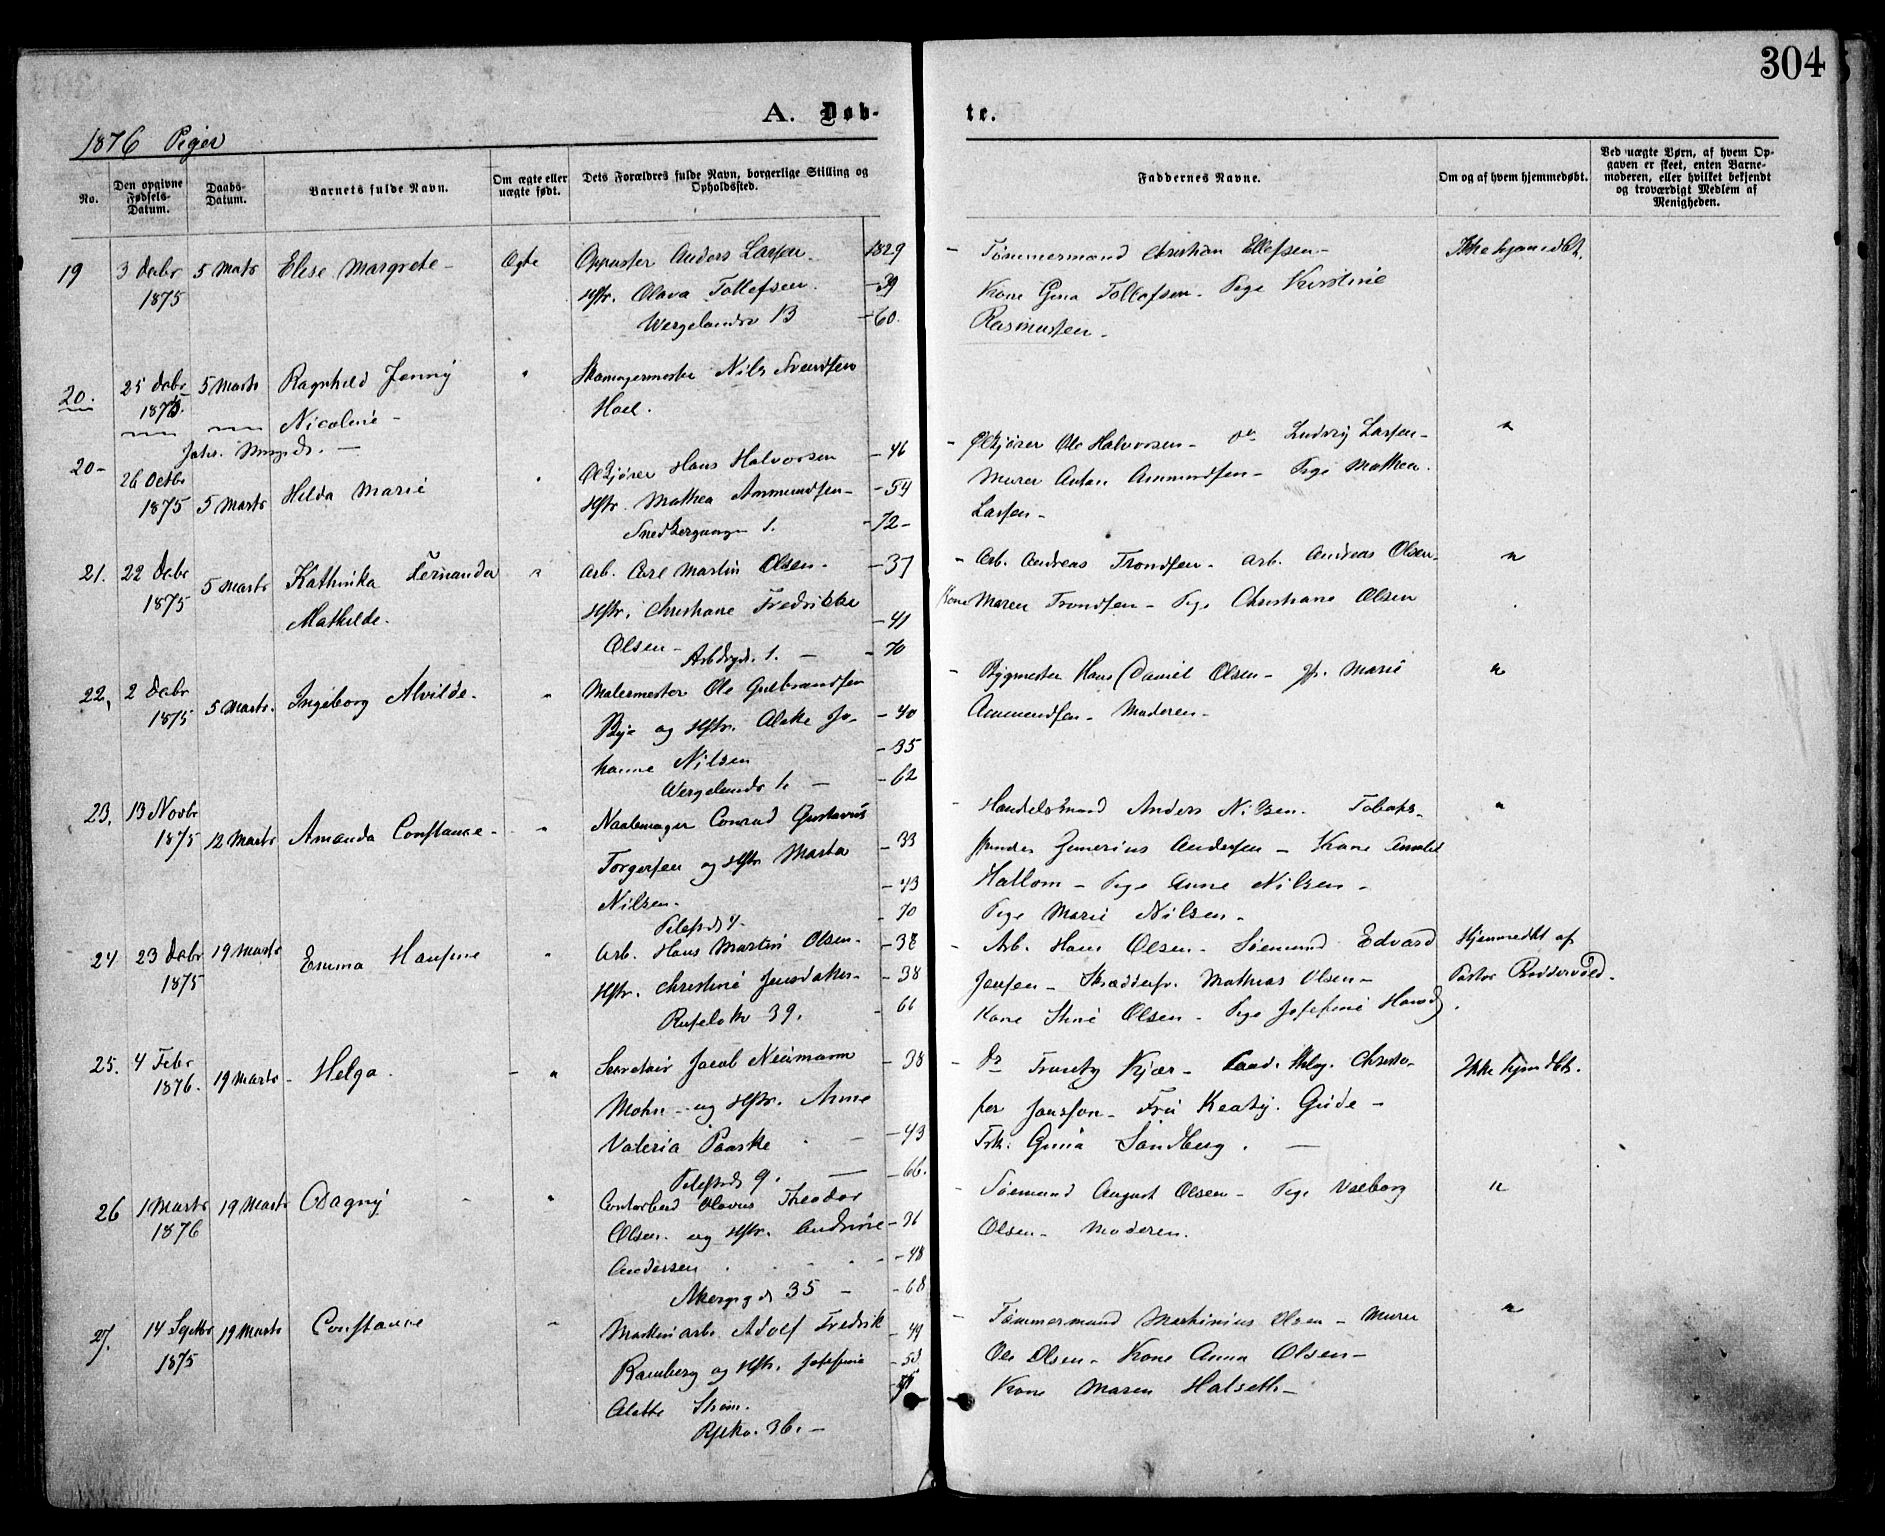 304
A. Døb-
te.
1876 Piger
No.
Den opgivne Fødsels-Datum.
Daabs-Datum.
Barnets fulde Navn.
Om ægte eller uægte født.
Dets Forældres fulde Navn, borgerlige Stilling og Opholdssted.
Faddernes Navne.
Om og af hvem hjemmedøbt.
Ved uægte Børn, af hvem Op-
gaven er skeet, enten Barne-
moderen, eller hvilket bekjendt
og troværdigt Medlem af
Menigheden.
19 3 Decbr 5 Marts Elise Margrete - Ægte Anders Larsen 1829
1875 Hstr. Olava Tollefsen. - 39
Wergelandsv 13 - 60.
- Tømmermand Christian Ellefsen -
Kone Gina Tollefsen - Pige Kirstine
Rasmussen -
20. 25 Decbr 5 Marts Ragnhild Jenny " Skomagermester Nils Svendsen
1875. Nicoline - Hoel.
20- 26 Octbr
1875 5 Marts Hilda Marie " Hans Halvorsen - 46
Hstr. Mathea Ammundsen - - 54
Snedkergangen 1. - 72 -
- Ole Halvorsen - do Ludvig Larsen -
Murer Anton Ammundsen - Pige Mathea
Larsen - "
21. 22 Decbr 5 Marts Kathinka Fernanda " Arb. Carl Martin Olsen - - 37
1875 Mathilde. Hstr. Christiane Fredrikke - 41
Olsen - 1. - - 70
- Arb. Andreas Trondsen - Arb. Andreas Olsen - "
Kone Maren Trondsen - Pige Christiane Olsen
22. 2 Decbr 5 Marts. Ingeborg Alvilde. " Malermester Ole Gulbrandsen
1875 Bye og Hstr. Jo- - 40
hanne Nilsen - 35
Wergelandsv 1. - - 62
- Bygmester Hans Daniel Olsen - Marie "
Ammundsen - Moderen -
23. 13 Novbr
1875 12 Marts Amanda Constance - " Conrad Gustavus
Torgersen og Hstr Marta - 33
Nilsen. - 43
Pilestrd 4. - 70
- Handelsmand Anders Nilsen. Tobaks- "
Andersen - Kone
Hallom - Pige Anne Nilsen -
Pige Marie Nilsen -
24 23 Decbr 19 Marts Emma Hansine " Arb. Hans Martin Olsen - - 38
1875 Hstr. Christine - 38
39. - 66
- Arb. Hans Olsen - Sømand Edvard
Jensen - Skrædersv. Mathias Olsen -
Kone Stine Olsen - Pige Josefine
Hjemmedbt af
Pastor
25. 4 Febr
1876. 19 Marts - Helga. - " Secretair Jacob Neumann - 38
Mohn - og Hstr. Anne
Valeria Paaske - - 43
Pilestrd 9. - - 66.
- Dr Kjær -
Jansson - Fru Gude -
Frk. Sandberg. -
Ikke hjmdbt.
26 1 Marts 19 Marts Dagny - " Olavus Theodor
1876 Olsen - og Hstr. Andrine - 36
Andersen - 48
35 - - 68
- Sømand August Olsen - Pige Valborg "
Olsen - Moderen.
27. 14 Septbr 19 Marts Constance " Maskinarb. Adolf Fredrik - 49
1875 Ramberg og Hstr. Josefine
Alette Strøm.
36. -
- Tømmermand Martinius Olsen - Murer "
Ole Olsen - Kone Anna Olsen -
Kone Maren Halseth -